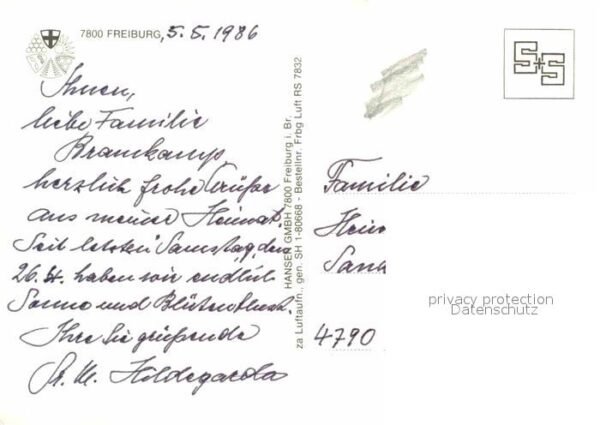 7800 FREIBURG, 5.5.1986
Ihnen,
liebe Familie
Bramkamp
herzlich frohe Grüße
aus meiner Heimat.
Seit letzten Samstag, den
26. 4. haben wir endlich
Sonne und Blütenduft.
Ihre Sie grüßende
Sr. M. Hildegarda
HANSEN GMBH 7800 Freiburg i. Br.
za Luftaufn., gen. SH 1-80668 - Bestellnr. Frbg Luft RS 7832
S+S
Familie
Hein
Sana
4790
privacy protection
Datenschutz